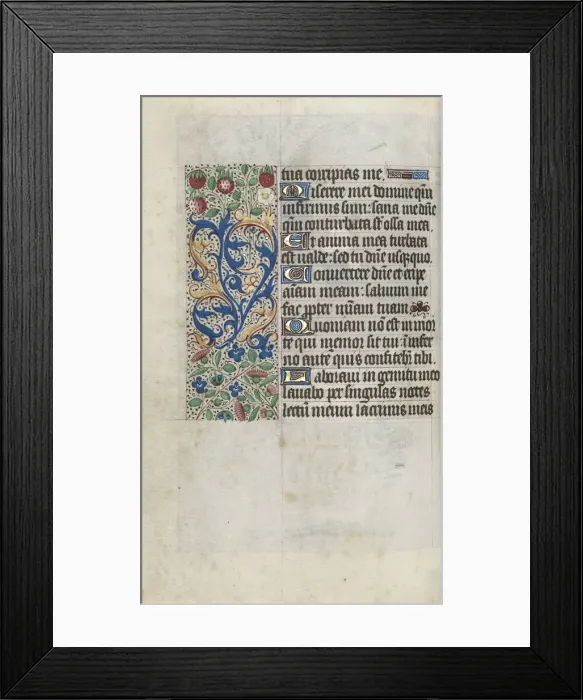 tua corripias me.
Miserere mei domine qm̄
infirmus sum: sana me dn̄e
qm̄ conturbata sт̄ ossa mea.
Et anima mea turbata
est ualde: sed tu dn̄e usquequo.
Conuertere dn̄e et eripe
aīam meam: saluum me
fac ꝓpter mīam tuam
Quoniam nō est in mor
te qui memor sit tui: ī infer
no autē quis confitebit̄ tibi.
Laboraui in gemitu meo
lauabo per singulas noctes
lectū meum lacrimis meis